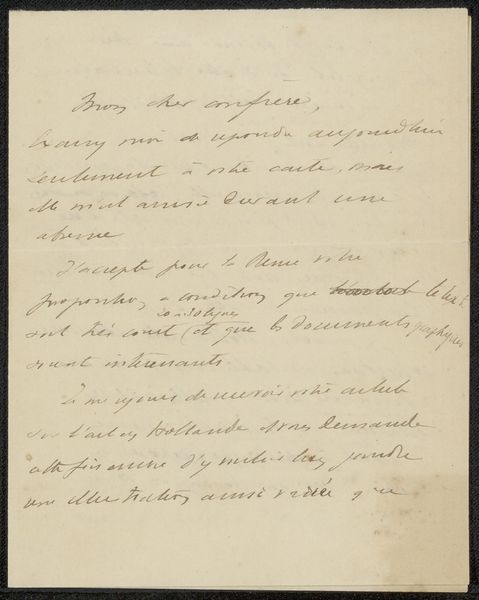 Mon cher confrère,
Excusez moi de repondre aujourd'hui
seulement à votre carte, mais
elle m'est arrivée durant une
absence
J'accepte pour la Revue votre
proposition, à condition que le texte
20 à 30 lignes
soit très court (et que les documents graphiques
soient intéressants
Je me rejouis de recevoir votre article
sur l'art en Hollande & vous demande
cette fois encore d'y bien joindre
une illustration aussi variée que